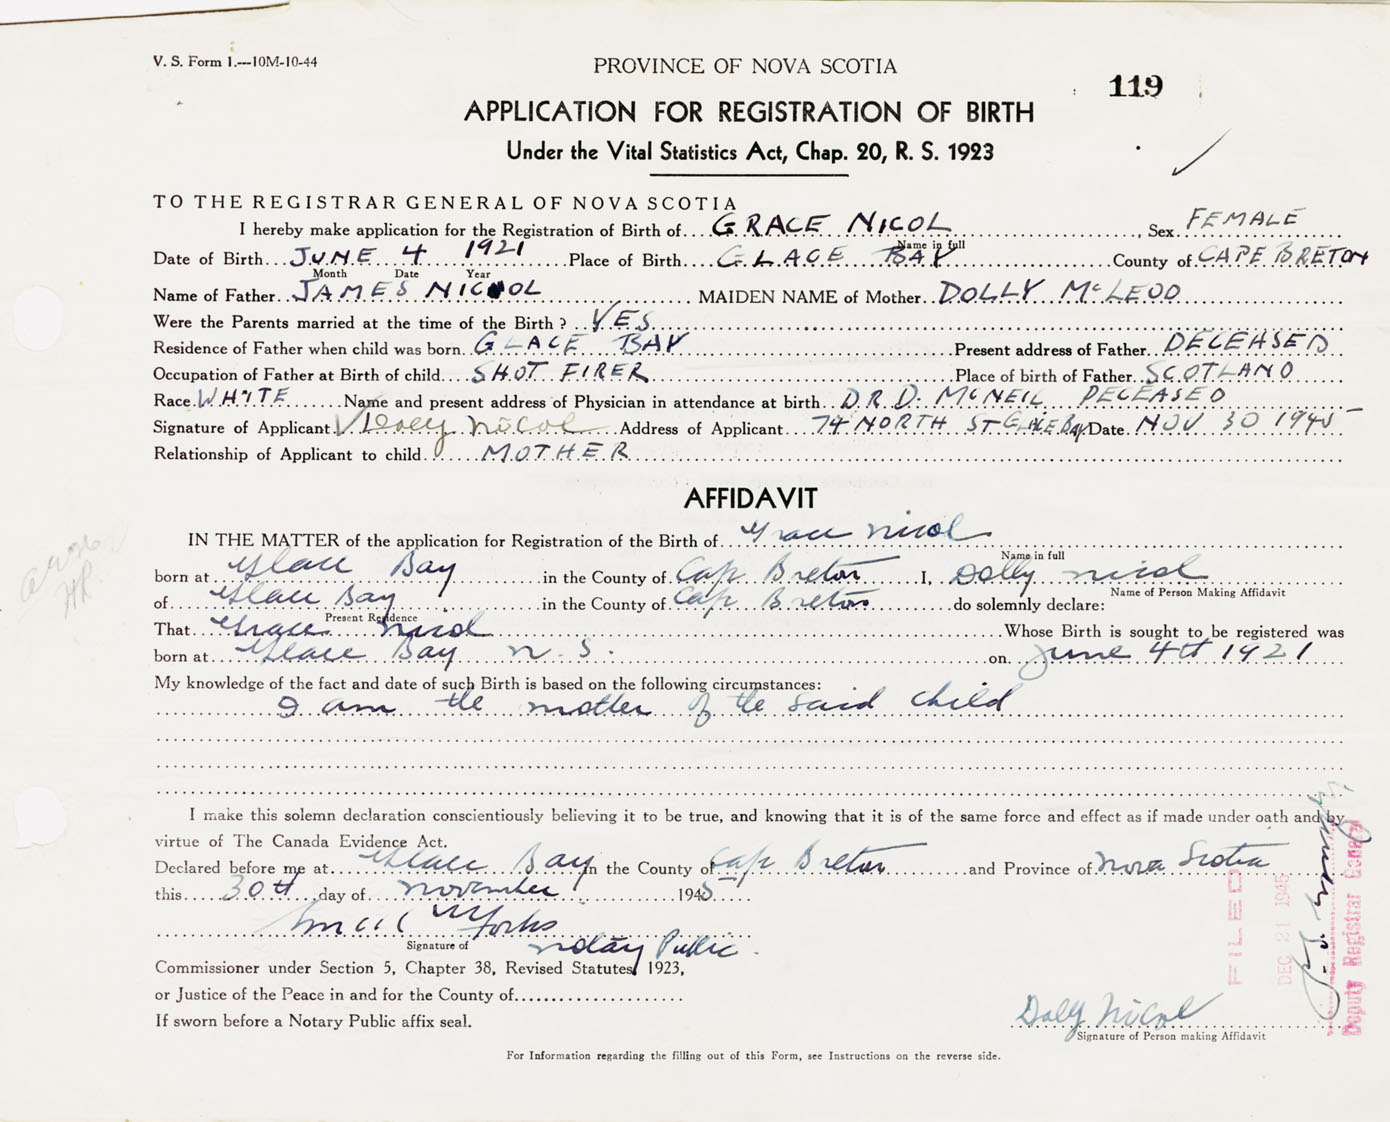 V. S. Form 1.—10M-10-44
PROVINCE OF NOVA SCOTIA
119
APPLICATION FOR REGISTRATION OF BIRTH
Under the Vital Statistics Act, Chap. 20, R. S. 1923
TO THE REGISTRAR GENERAL OF NOVA SCOTIA
I hereby make application for the Registration of Birth of GRACE NICOL, Sex FEMALE
Name in full
Date of Birth JUNE 4 1921 Place of Birth GLACE BAY County of CAPE BRETON
Month Date Year
Name of Father JAMES NICOL MAIDEN NAME of Mother DOLLY McLEOD
Were the Parents married at the time of the Birth? YES
Residence of Father when child was born GLACE BAY Present address of Father DECEASED
Occupation of Father at Birth of child SHOT FIRER Place of birth of Father SCOTLAND
Race WHITE Name and present address of Physician in attendance at birth DR D. McNEIL DECEASED
Signature of Applicant Dolly Nicol Address of Applicant 74 NORTH ST GLACE Bay Date NOV 30 1945
Relationship of Applicant to child MOTHER
AFFIDAVIT
IN THE MATTER of the application for Registration of the Birth of Grace Nicol
Name in full
born at Glace Bay in the County of Cape Breton I, Dolly Nicol
Name of Person Making Affidavit
of Glace Bay in the County of Cape Breton do solemnly declare:
Present Residence
That Grace Nicol Whose Birth is sought to be registered was
born at Glace Bay N. S. on June 4th 1921
My knowledge of the fact and date of such Birth is based on the following circumstances:
I am the mother of the said child
I make this solemn declaration conscientiously believing it to be true, and knowing that it is of the same force and effect as if made under oath and by
virtue of The Canada Evidence Act.
Declared before me at Glace Bay in the County of Cape Breton and Province of Nova Scotia
this 30th day of November 1945
Signature of Notary Public
Commissioner under Section 5, Chapter 38, Revised Statutes, 1923,
or Justice of the Peace in and for the County of
If sworn before a Notary Public affix seal.
Dolly Nicol
Signature of Person making Affidavit
FILED
DEC 21 1945
Deputy Registrar General
For Information regarding the filling out of this Form, see Instructions on the reverse side.